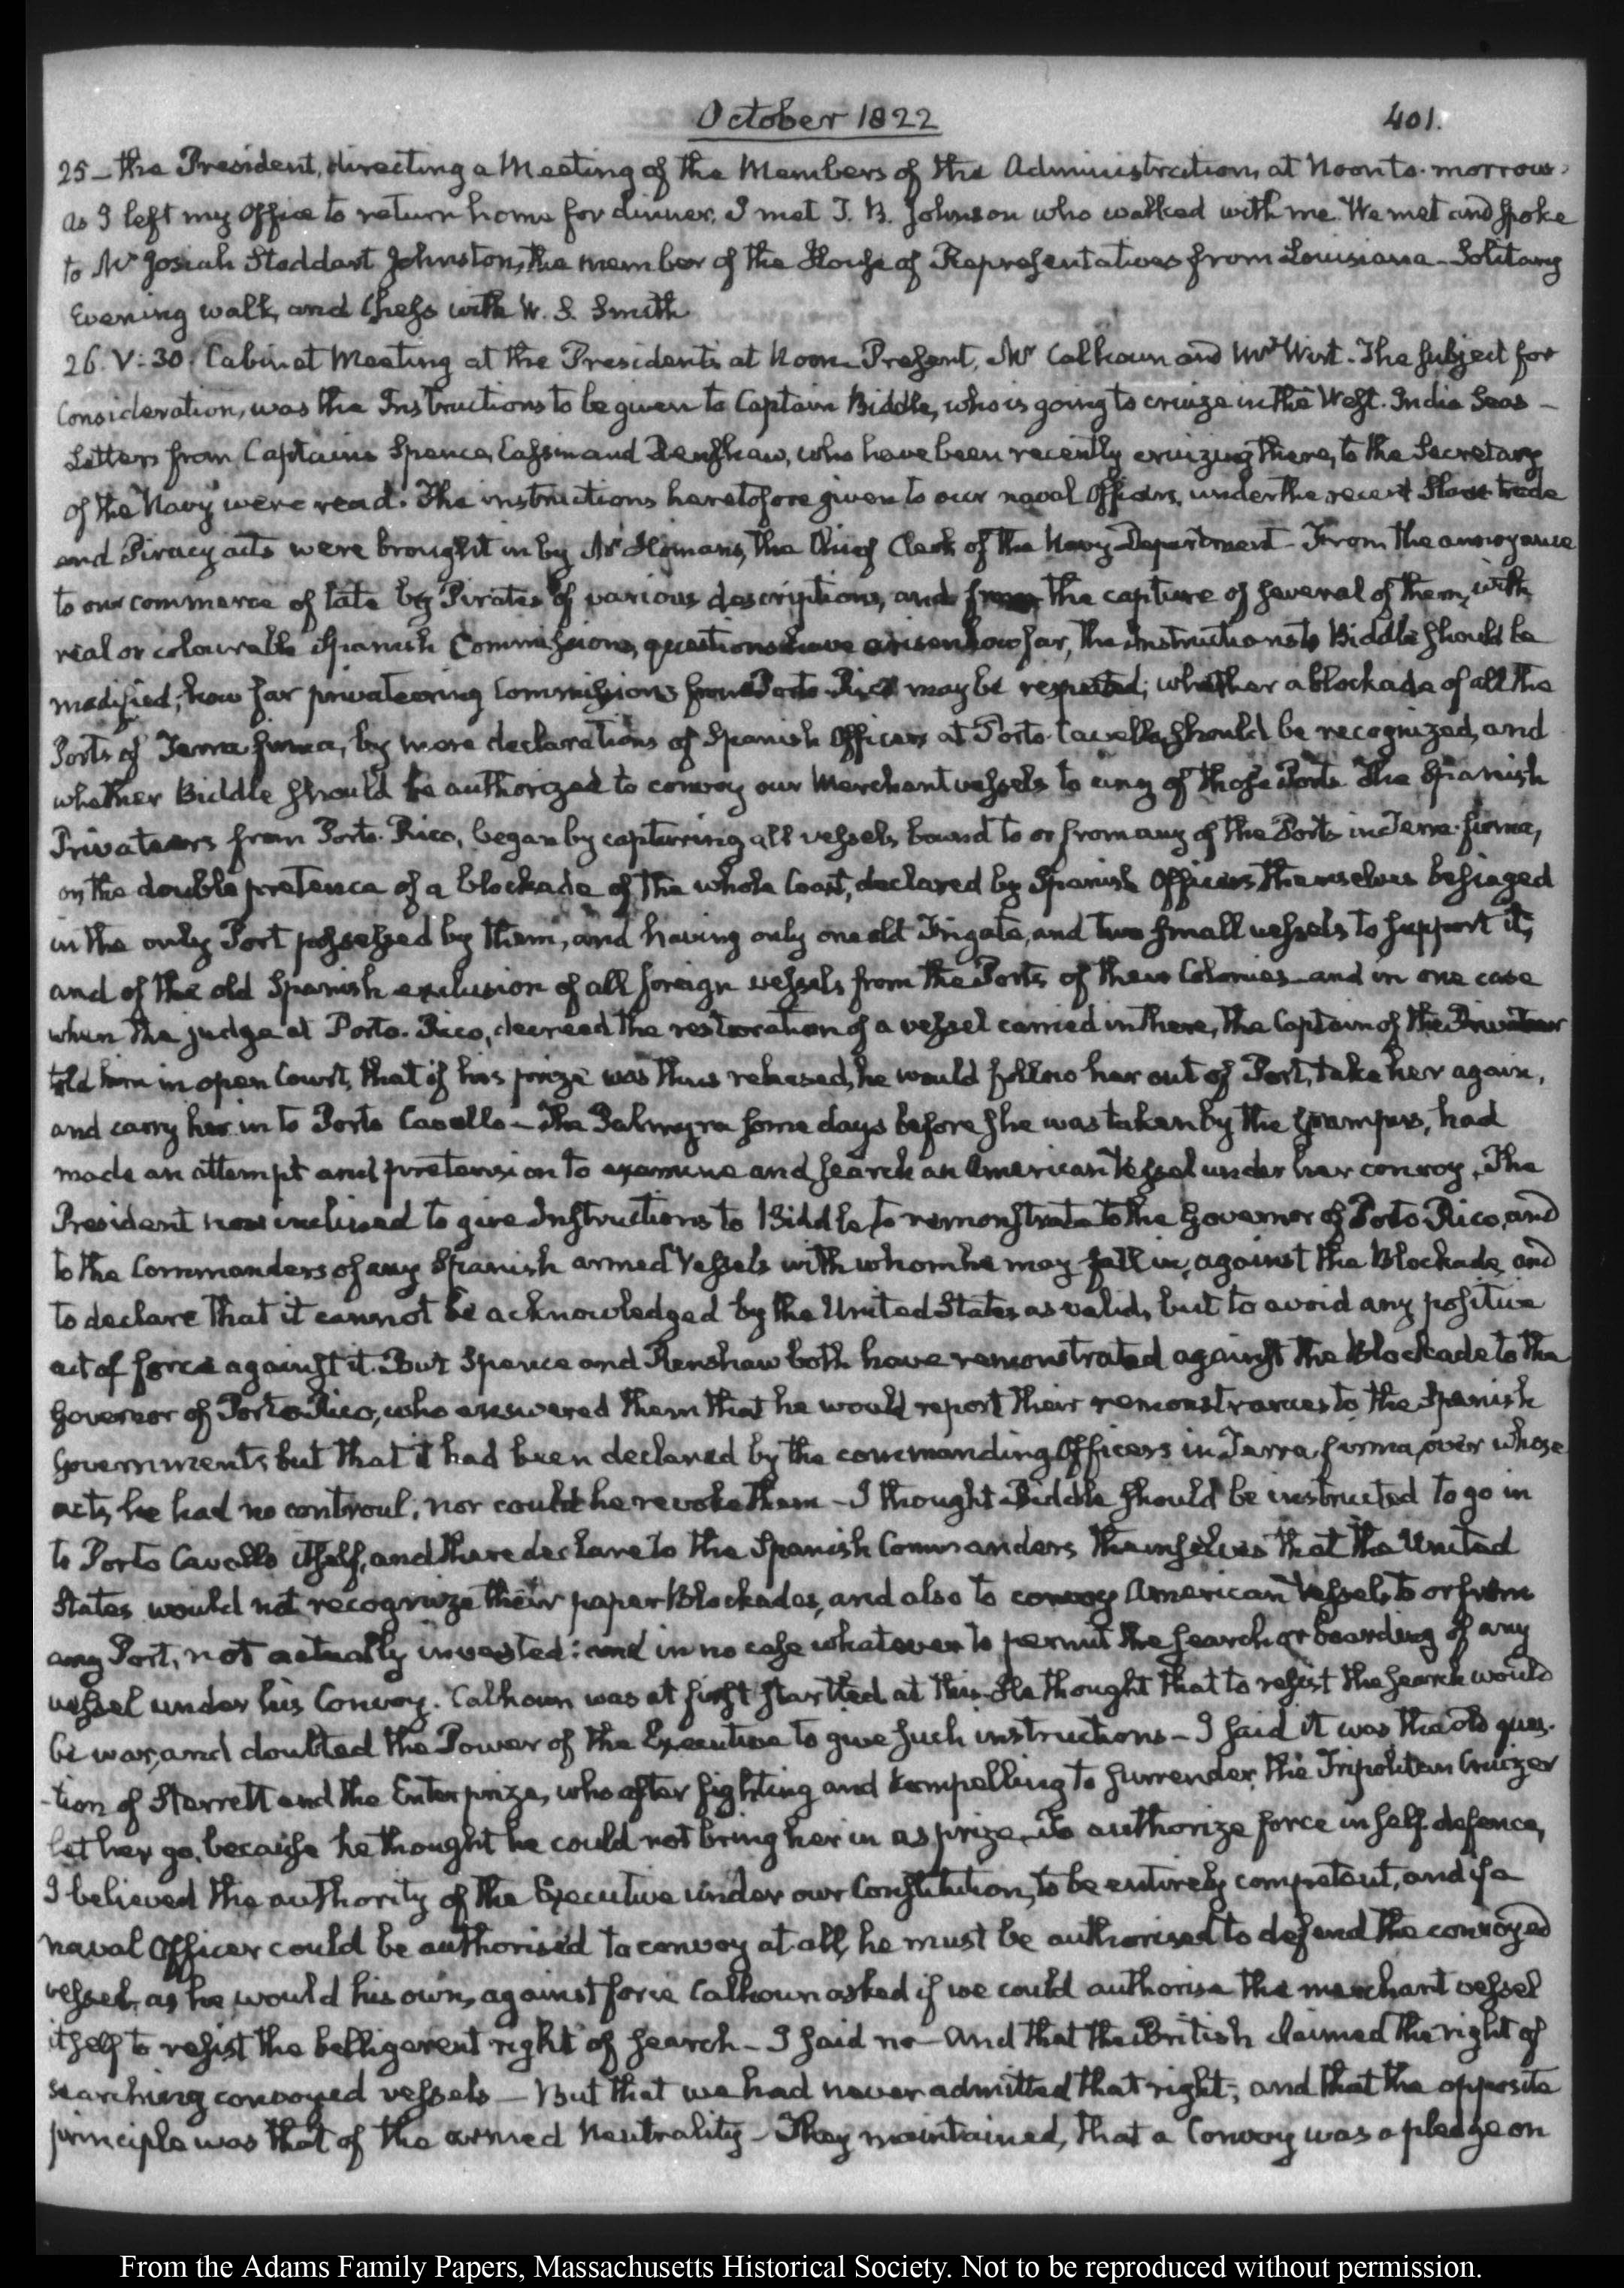 October 1822
401.
25 - the President, directing a Meeting of the Members of the Administration, at Noon to-morrow.
As I left my Office to return home for dinner, I met T. B. Johnson who walked with me. We met and spoke
to Mr Josiah Stoddart Johnston, the member of the House of Representatives from Louisiana - Solitary
Evening walk, and Chess with W. S. Smith.
26. V:30. Cabinet Meeting at the President's at Noon - Present, Mr Calhoun and Mr Wirt. The subject for
Consideration, was the Instructions to be given to Captain Biddle, who is going to cruize in the West-India Seas -
Letters from Captains Spence, Cassin and Renshaw, who have been recently cruizing there, to the Secretary
of the Navy were read. The instructions heretofore given to our naval Officers, under the recent Slave-trade
and Piracy acts were brought in by Mr Homans, the Chief Clerk of the Navy Department - From the annoyance
to our commerce of late by Pirates of various descriptions, and from the capture of several of them, with
real or colourable Spanish Commissions, questions have arisen how far, the Instructions to Biddle should be
modified; how far privateering Commissions from Porto-Rico may be respected; whether a blockade of all the
Ports of Terra firma, by mere declarations of Spanish Officers at Porto-Cavello, should be recognized, and
whether Biddle should be authorized to convoy our Merchant vessels to any of those Ports. The Spanish
Privateers from Porto-Rico, began by capturing all vessels, bound to or from any of the Ports in Terra-firma,
on the double pretence of a blockade of the whole Coast, declared by Spanish Officers themselves besieged
in the only Port possessed by them, and having only one old Frigate, and two small vessels to support it,
and of the old Spanish exclusion of all foreign vessels from the Ports of their Colonies - and in one case
when the judge at Porto-Rico, decreed the restoration of a vessel carried in there, the Captain of the Privateer
told him in open Court, that if his prize was thus released, he would follow her out of Port, take her again,
and carry her in to Porto Cavello - The Palmyra some days before she was taken by the Grampus, had
made an attempt and pretension to examine and search an American Vessel under her convoy. The
President now inclined to give Instructions to Biddle, to remonstrate to the Governor of Porto Rico, and
to the Commanders of any Spanish armed Vessels with whom he may fall in, against the Blockade, and
to declare that it cannot be acknowledged by the United States, as valid, but to avoid any positive
act of force against it. But Spence and Renshaw both have remonstrated against the Blockade to the
Governor of Porto Rico, who answered them that he would report their remonstrances to the Spanish
Government; but that it had been declared by the commanding Officers in Terra firma, over whose
acts, he had no controul, nor could he revoke them - I thought Biddle should be instructed to go in
to Porto Cavello itself, and there declare to the Spanish Commanders themselves that the United
States would not recognize their paper Blockades, and also to convoy American Vessels, to or from
any Port, not actually invested: and in no case whatever to permit the search or boarding of any
vessel under his Convoy. Calhoun was at first startled at this - He thought that to resist the search would
be war, and doubted the Power of the Executive to give such instructions - I said it was the old ques-
-tion of Sterrett and the Enterprize, who after fighting and compelling to surrender, the Tripolitan Cruizer
let her go, because he thought he could not bring her in as prize. To authorize force in self-defence,
I believed the authority of the Executive under our Constitution, to be entirely competent, and if a
naval Officer could be authorised to convoy at all, he must be authorised to defend the convoyed
vessel, as he would his own, against force. Calhoun asked if we could authorise the merchant vessel
itself to resist the belligerent right of search - I said no - And that the British claimed the right of
searching convoyed vessels - But that we had never admitted that right; and that the opposite
principle was that of the armed Neutrality - They maintained, that a Convoy was a pledge on
From the Adams Family Papers, Massachusetts Historical Society. Not to be reproduced without permission.